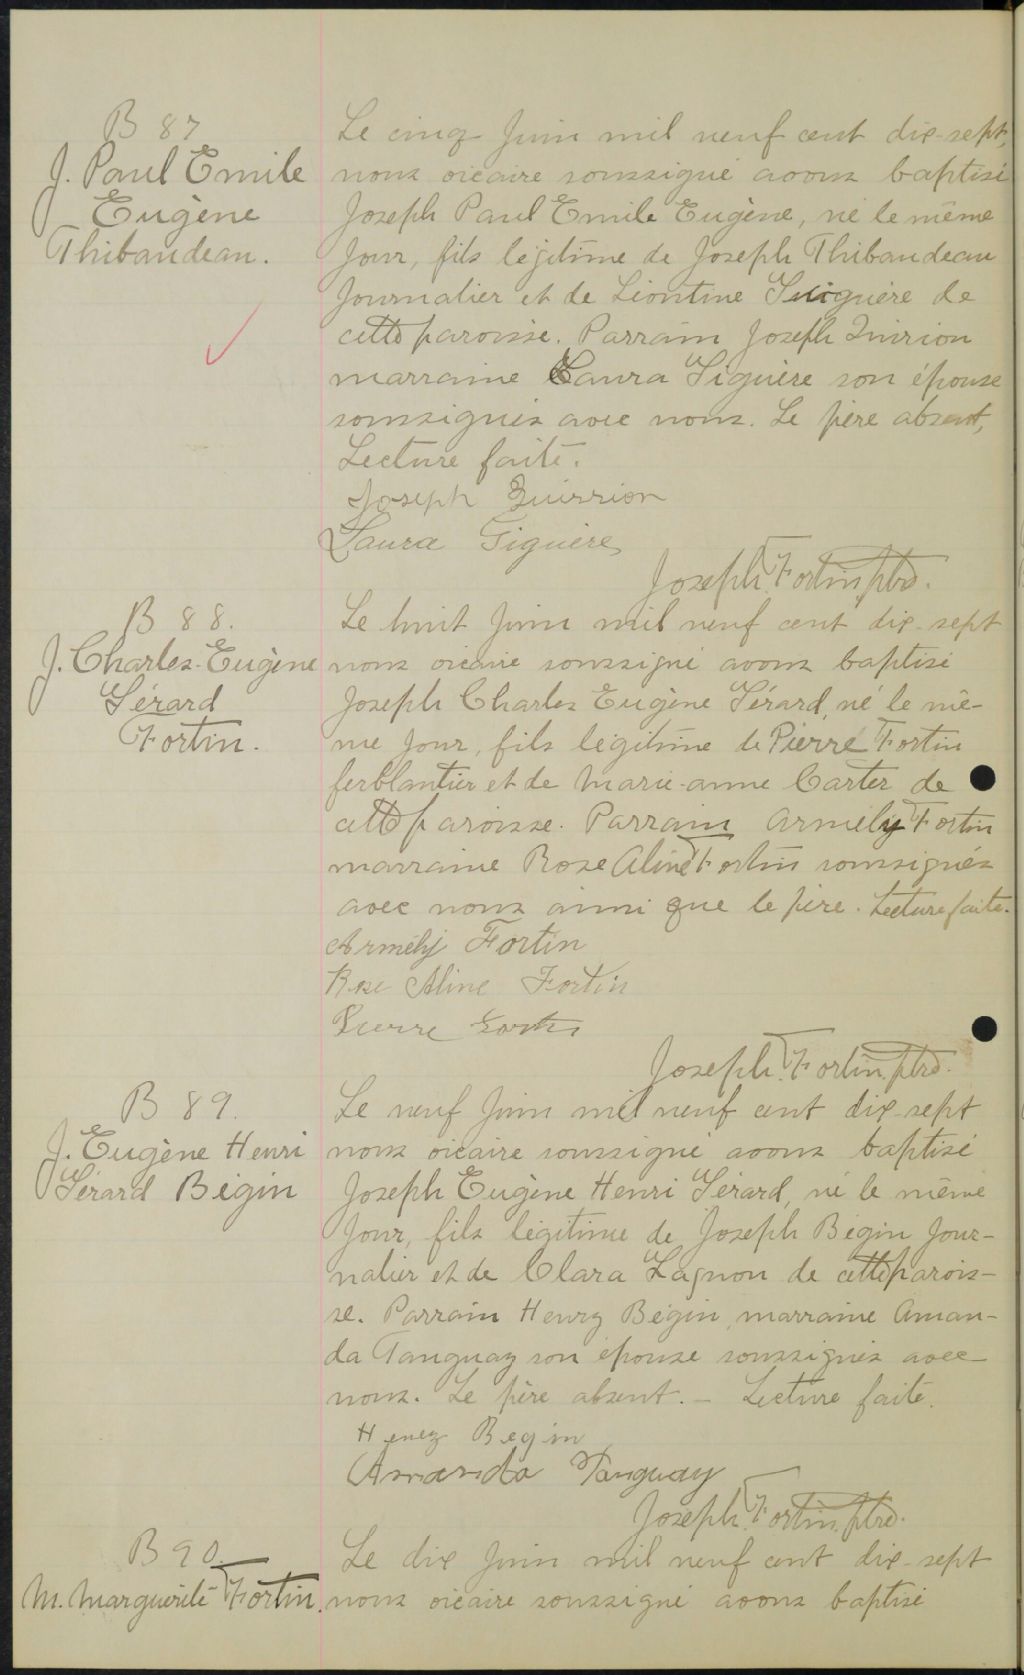 B 87
J. Paul Emile
Eugène
Thibaudeau.
Le cinq Juin mil neuf cent dix-sept,
nous vicaire soussigné avons baptisé
Joseph Paul Emile Eugène, né le même
Jour, fils légitime de Joseph Thibaudeau
Journalier et de Léontine Giguère de
cette paroisse. Parrain Joseph Quirion
marraine Laura Giguère son épouse
soussignés avec nous. Le père absent,
Lecture faite.
Joseph Quirrion
Laura Giguère
Joseph Fortin, ptre.
B 88.
J. Charles-Eugène
Gérard
Fortin.
Le huit Juin mil neuf cent dix-sept
nous vicaire soussigné avons baptisé
Joseph Charles Eugène Gérard, né le mê-
me Jour, fils légitime de Pierre Fortin
ferblantier et de Marie-Anne Carter de
cette paroisse. Parrain Armély Fortin
marraine Rose Aline Fortin soussignés
avec nous ainsi que le père. Lecture faite.
Armély Fortin
Rose Aline Fortin
Pierre Fortin
Joseph Fortin, ptre.
B 89.
J. Eugène Henri
Gérard Bégin
Le neuf Juin mil neuf cent dix-sept
nous vicaire soussigné avons baptisé
Joseph Eugène Henri Gérard, né le même
Jour, fils légitime de Joseph Bégin Jour-
nalier et de Clara Gagnon de cette parois-
se. Parrain Henry Bégin, marraine Aman-
da Tanguay son épouse soussignés avec
nous. Le père absent. – Lecture faite.
Henry Begin
Amanda Tanguay
Joseph Fortin, ptre.
B 90.
M. Marguerite Fortin.
Le dix Juin mil neuf cent dix-sept
nous vicaire soussigné avons baptisé